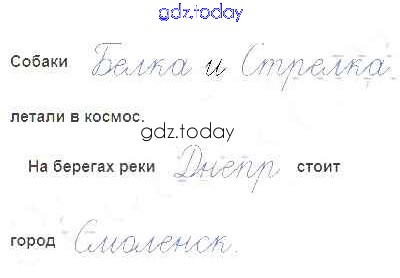 gdz.today
Собаки Белка и Стрелка
летали в космос.
gdz.today
На берегах реки Днепр стоит
город Смоленск.